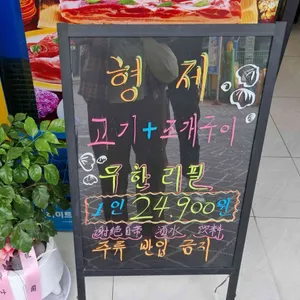 형 제
고기+조개구이
무한 리필
1인 24.900원
謝絶自帶 酒水 饮料
주류 반입 금지